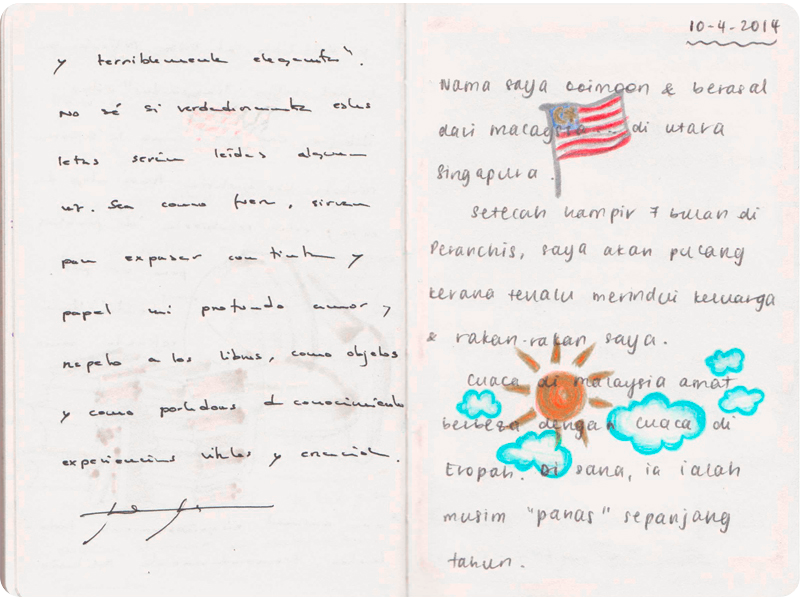 y terriblemente elegante".
No sé si verdaderamente estas
letras serán leídas alguna
vez. Sea como fuere, sirvan
para expresar con tinta y
papel mi profundo amor y
respeto a los libros, como objetos
y como portadores de conocimiento
experiencias vitales y
10-4-2014
Nama saya & berasal
dari malaysia.. di utara
Singapura.
Setelah hampir 7 bulan di
Peranchis, saya akan pulang
kerana terlalu merindui keluarga
& rakan-rakan saya.
Cuaca di malaysia amat
berbeza dengan cuaca di
Eropah. Di sana, ia ialah
musim "panas" sepanjang
tahun.